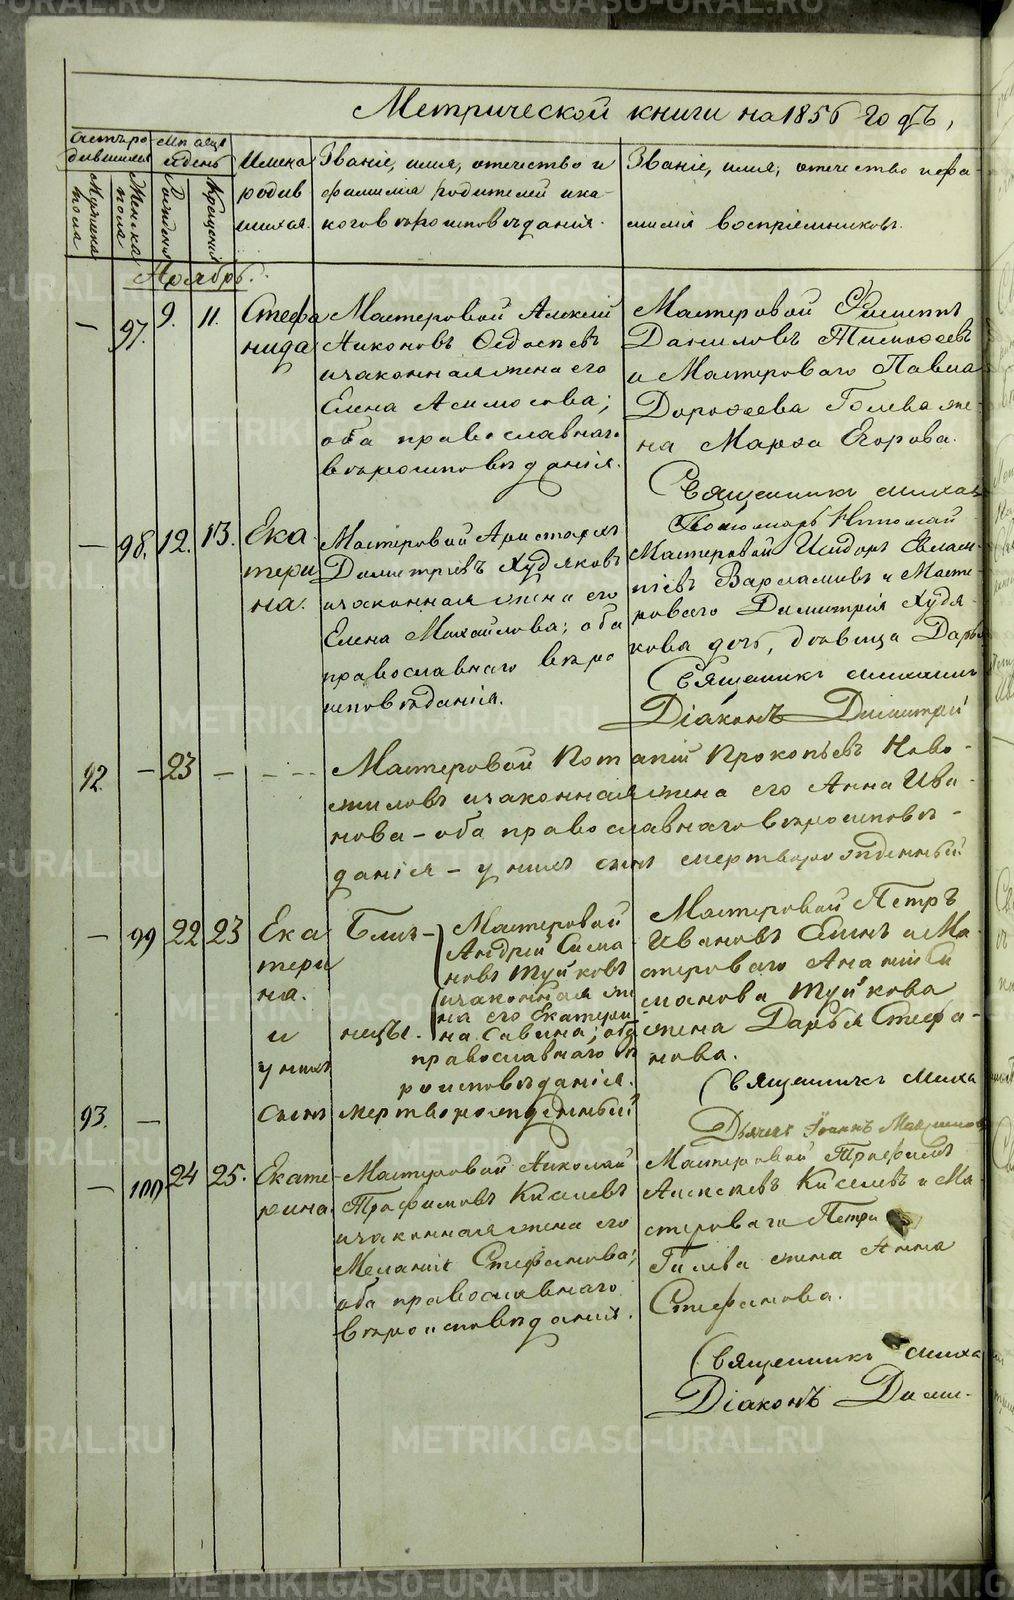 Метрической книги на 1856 годъ,
Счетъ ро
дившихся
Мѣсяцъ
и день
Имена
родив
шихся.
Званіе, имя, отечество и
фамилія родителей и ка
когов вѣроисповѣданія.
Званіе, имя, отечество и фа-
милія воспріемниковъ.
Мужска
пола.
Женска
пола
Рожденія
Крещенія
Ноябрь.
— 97. 9. 11.
Стефа
нида
Мастеровой Алексій
Никоновъ Ѳедосѣевъ
и законная жена его
Елена
оба православнаго
вѣроисповѣданія.
Мастеровой Филиппъ
Даниловъ Тимоѳеевъ
и Мастероваго Павла
Дороѳеева Голева же-
на Марѳа Егорова.
Священникъ Миха
Пономарь Николай
— 98. 12. 13.
Ека
тери
на.
Мастеровой Аристархъ
Димитріевъ Худяковъ
и законная жена его
Елена Михайлова; оба
православнаго вѣро
исповѣданія.
Мастеровой Исидоръ Евлам-
піевъ Варламовъ и Масте-
роваго Димитрія Худя-
кова дочь, дѣвица Дарья
Священникъ Михаилъ
Діаконъ Димитрій
92. — 23 — — —
Мастеровой Потапій Прокопьевъ Ново-
жиловъ и законная жена его Анна Ива-
нова — оба православнаго вѣроисповѣ-
данія — у нихъ сынъ мертворожденный
— 99 22 23
Ека
тери
на.
и
у нихъ
Близ-
нецы.
Мастеровой
Андрей Сима
новъ Туйковъ
и законная же
на его Екатери
на Савина; оба
православнаго вѣ
роисповѣданія.
Мастеровой Петръ
Ивановъ Елинъ и Ма
стероваго Ананіи Си
манова Туйкова
жена Дарья Стефа-
нова.
Священникъ Миха
93. —
сынъ мертворожденный
Дьячекъ Іоаннъ
— 100 24 25.
Екате-
рина.
Мастеровой Николай
Трофимовъ Киселевъ
и законная жена его
Меланія Стефанова;
оба православнаго
вѣроисповѣданія.
Мастеровой Трофимъ
Алексѣевъ Киселевъ и Ма-
стероваго Петра
Гилева жена Анна
Стефанова.
Священникъ Миха
Діаконъ Дими-
METRIKI.GASO-URAL.RU